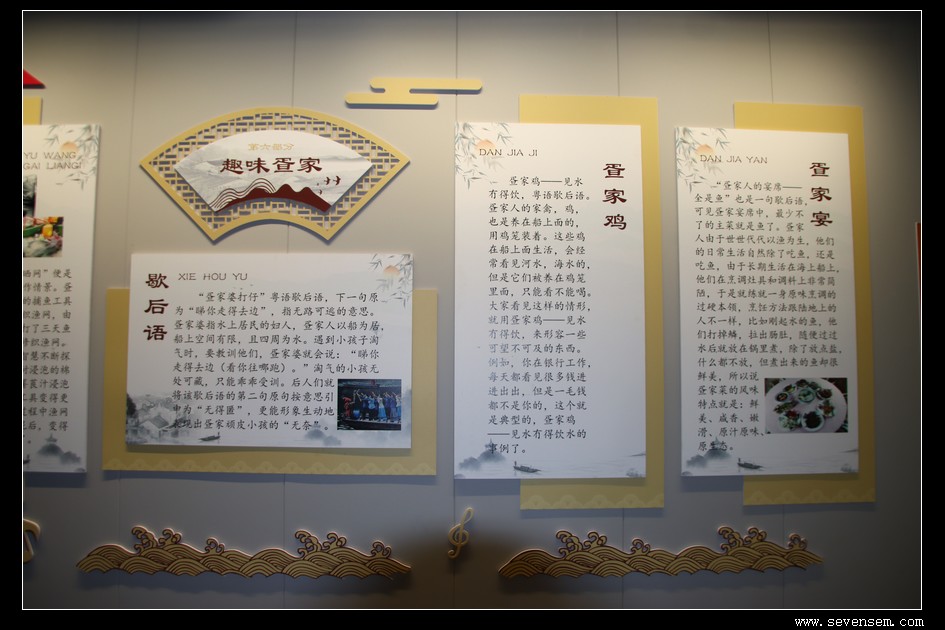 YU WANG
GAI LIANG
晒网”便是
作情景。疍
的捕鱼工具
织渔网，由
打了三天鱼
修织渔网。
智慧不断探
对浸泡的棉
将茛汁浸泡
工具变得更
过程中渔网
之后，变得
第六部分
趣味疍家
歇后语
XIE HOU YU
“疍家婆打仔”粤语歇后语，下一句原
为“睇你走得去边”，指无路可逃的意思。
疍家婆指水上居民的妇人，疍家人以船为居，
船上空间有限，且四周为水。遇到小孩子淘
气时，要教训他们，疍家婆就会说：“睇你
走得去边（看你往哪跑）。”淘气的小孩无
处可藏，只能乖乖受训。后人们就
将该歇后语的第二句原句按意思引
申为“无得匿”，更能形象生动地
表现出疍家顽皮小孩的“无奈”。
DAN JIA JI
疍家鸡
疍家鸡——见水
有得饮，粤语歇后语。
疍家人的家禽，鸡，
也是养在船上面的，
用鸡笼装着。这些鸡
在船上面生活，会经
常看见河水，海水的，
但是它们被养在鸡笼
里面，只能看不能喝。
大家看见这样的情形，
就用疍家鸡——见水
有得饮，来形容一些
可望不可及的东西。
例如，你在银行工作，
每天都看见很多钱进
进出出，但是一毛钱
都不是你的，这个就
是典型的，疍家鸡
——见水有得饮水的
事例了。
DAN JIA YAN
疍家宴
“疍家人的宴席——
全是鱼”也是一句歇后语，
可见疍家宴席中，最少不
了的主菜就是鱼了。疍家
人由于世世代代以渔为生，他们
的日常生活自然除了吃鱼，还是
吃鱼，由于长期生活在海上船上，
他们在烹调灶具和调料上非常简
陋，于是就练就一身原味烹调的
过硬本领，烹饪方法跟陆地上的
人不一样，比如刚起水的鱼，他
们打掉鳞，拉出肠肚，随便过过
水后就放在锅里煮，除了放点盐，
什么都不放，但煮出来的鱼却很
鲜美，所以说
疍家菜的风味
特点就是：鲜
美、咸香、嫩
滑、原汁原味、
原生态。
www.sevensem.com